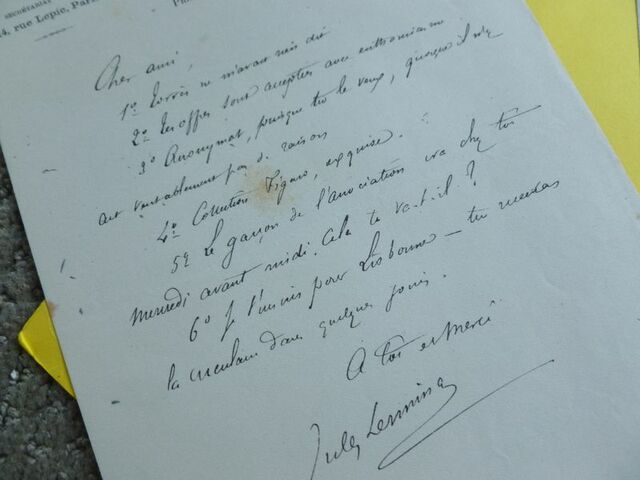 SECRÉTARIAT
14, rue Lepic, Paris
Cher ami,
1º Torrès ne m'avait rien dit
2º Tes offres sont acceptées avec enthousiasme
3º Anonymat, puisque tu le veux, quoiqu'il n'y
ait véritablement pas de raison
4º Collection Figaro, exquise.
5º Le garçon de l'association ira chez toi
mercredi avant midi. Cela te va-t-il ?
6º Je t'inscris pour Lisbonne — tu recevras
la circulaire dans quelques jours.
À toi et merci
Jules Lermina